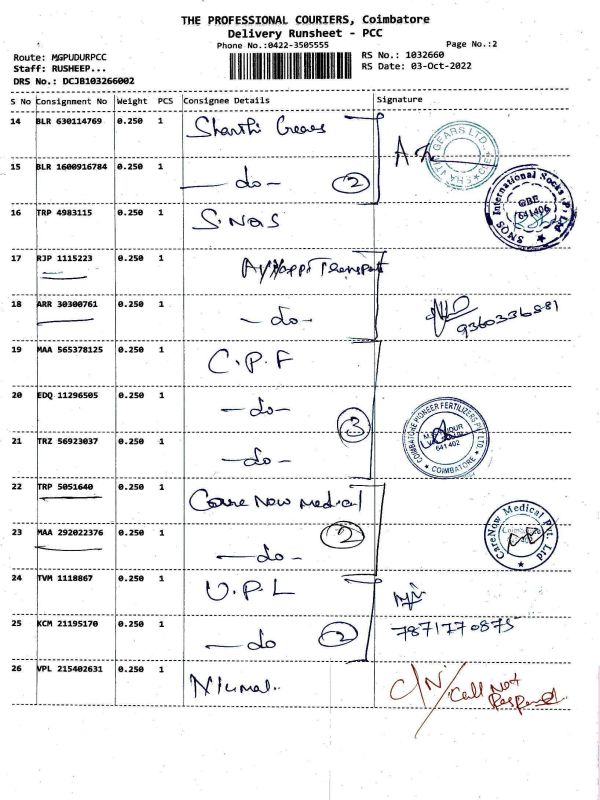 THE PROFESSIONAL COURIERS, Coimbatore
Delivery Runsheet - PCC
Phone No.:0422-3505555
Page No.:2
Route: MGPUDURPCC
Staff: RUSHEEP...
DRS No.: DCJB103266002
RS No.: 1032660
RS Date: 03-Oct-2022
S No Consignment No Weight PCS Consignee Details Signature
14 BLR 630114769 0.250 1 Shanthi Gears
GEARS LTD.
15 BLR 1600916784 0.250 1 - do - 2
SNQS International Socks (P) Ltd
641406
16 TRP 4983115 0.250 1 S.NQS
17 RJP 1115223 0.250 1 Ayyappa Transport
18 ARR 30300761 0.250 1 - do - 9360336881
19 MAA 565378125 0.250 1 C.P.F
20 EDQ 11296505 0.250 1 - do - 3
COIMBATORE PIONEER FERTILIZERS PVT LTD
641 402
COIMBATORE
21 TRZ 56923037 0.250 1 - do -
22 TRP 5051640 0.250 1 Care Now Medical
CareNow Medical Pvt. Ltd
23 MAA 292022376 0.250 1 - do - 2
24 TVM 1118867 0.250 1 U.P.L
25 KCM 21195170 0.250 1 - do 2 7871770875
26 VPL 215402631 0.250 1 Nirmal. C/N/ Call Not
Respond.